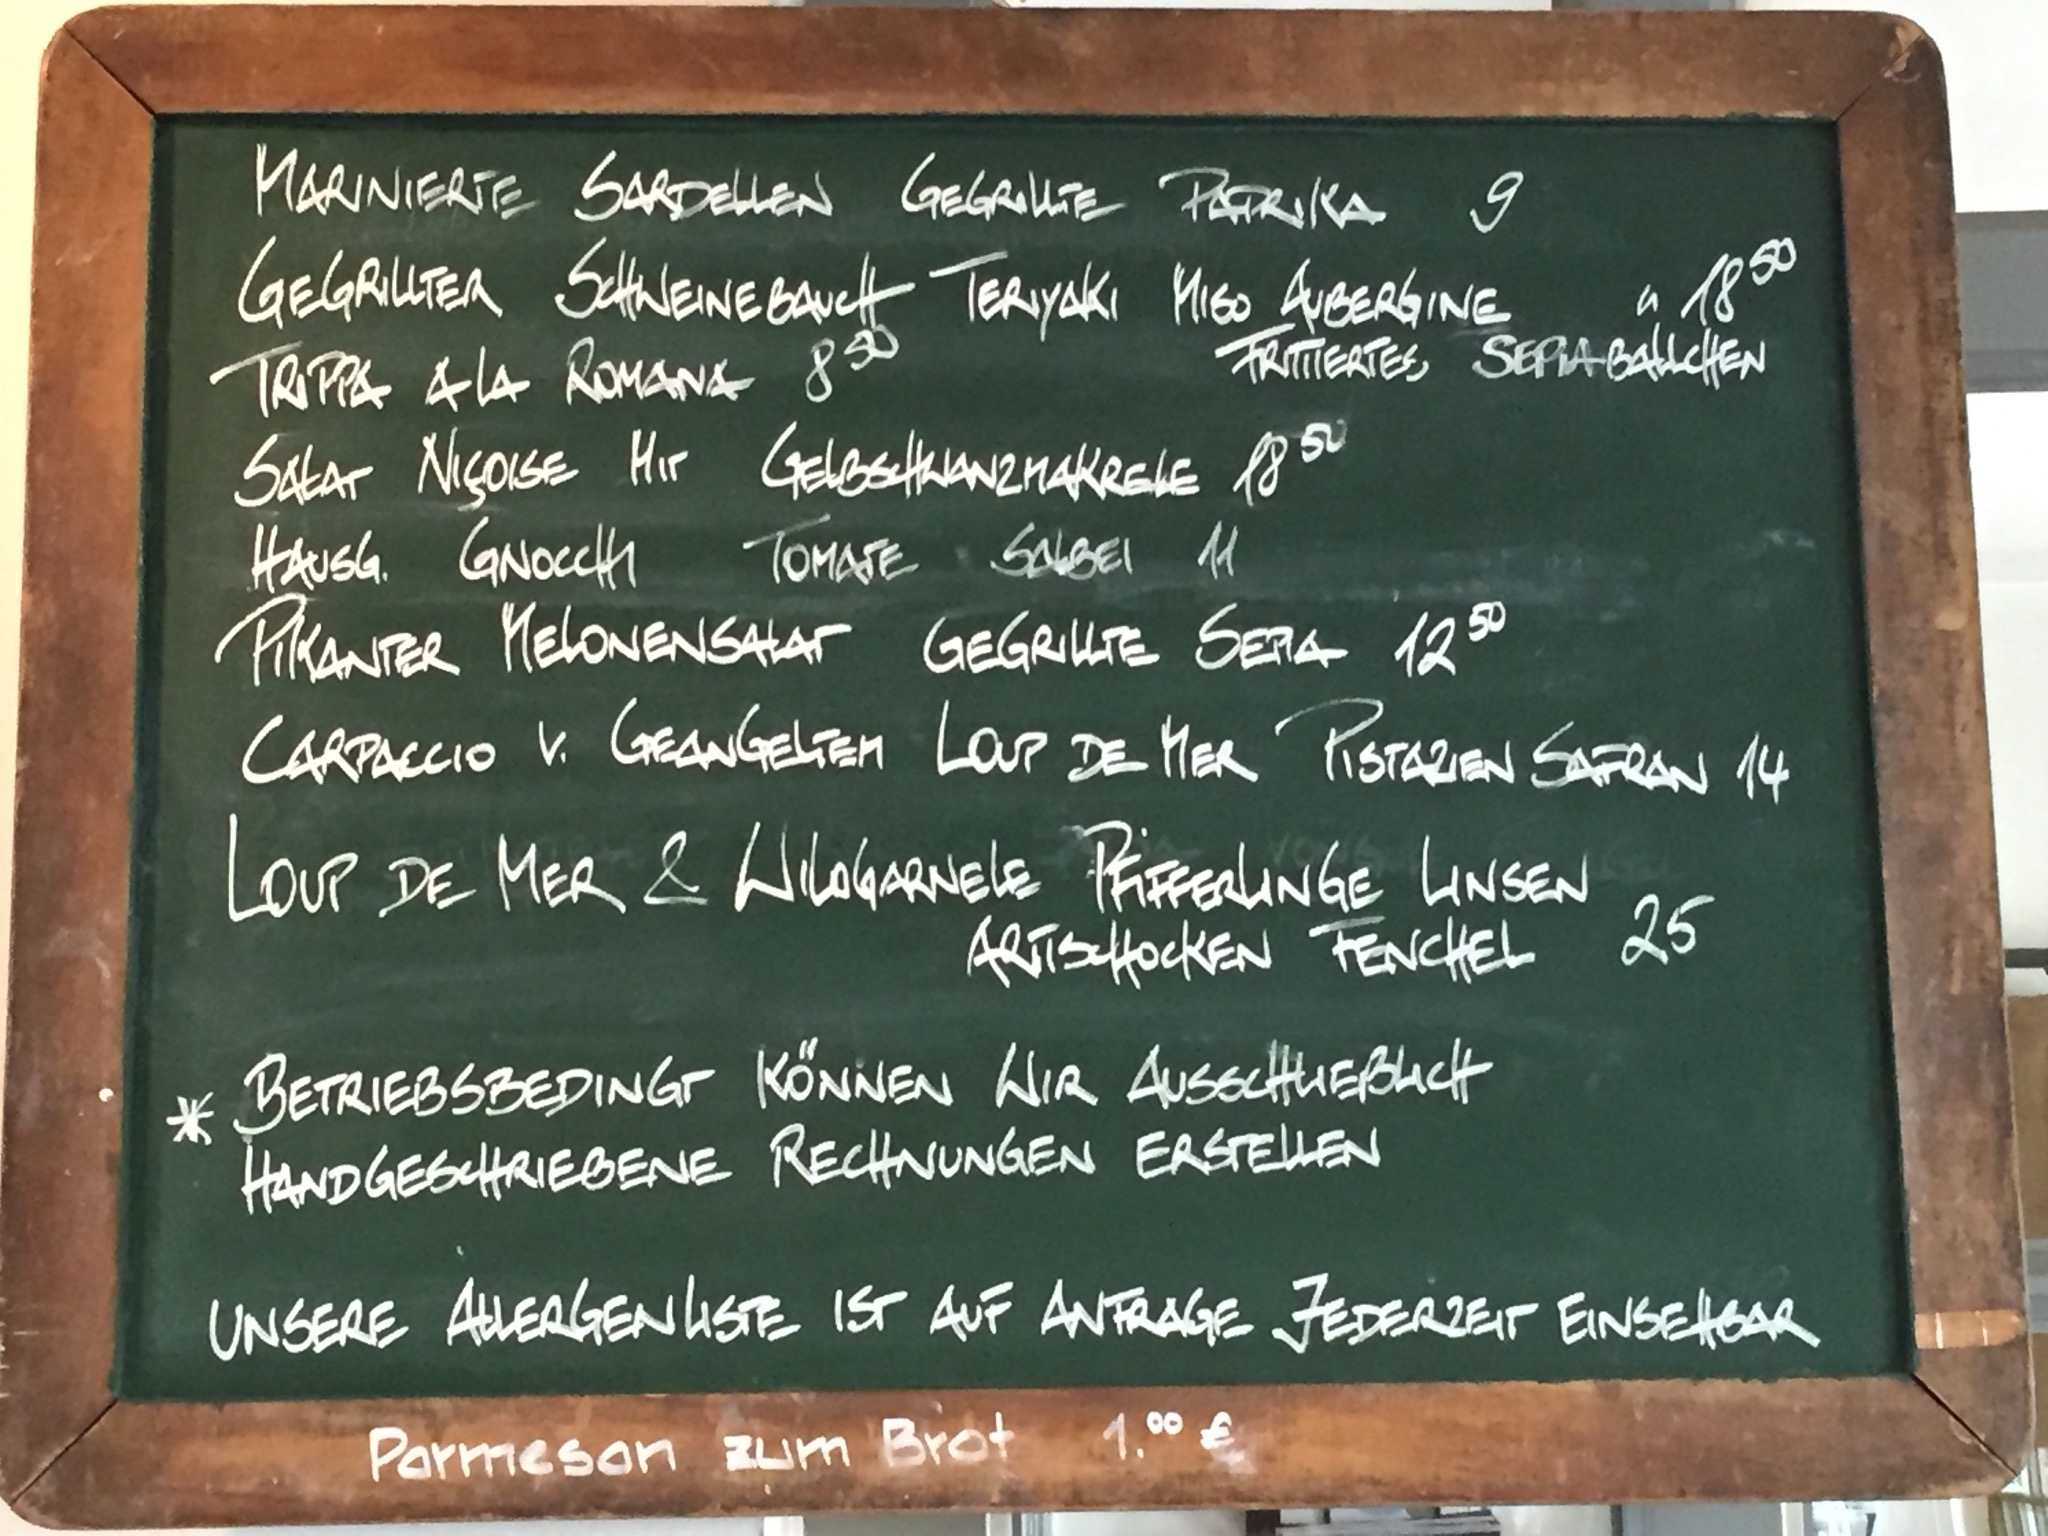 MARINIERTE SARDELLEN GEGRILLTE PAPRIKA 9
GEGRILLTER SCHWEINEBAUCH TERIYAKI MISO AUBERGINE " 18 50
FRITTIERTES SEPIABÄLLCHEN
TRIPPA A LA ROMANA 8 50
SALAT NIÇOISE MIT GELBSCHWANZMAKRELE 18 50
HAUSG. GNOCCHI TOMATE SALBEI 11
PIKANTER MELONENSALAT GEGRILLTE SEPIA 12 50
CARPACCIO V. GEANGELTEM LOUP DE MER PISTAZIEN SAFRAN 14
LOUP DE MER & WILDGARNELE PFIFFERLINGE LINSEN
ARTISCHOCKEN FENCHEL 25
* BETRIEBSBEDINGT KÖNNEN WIR AUSSCHLIEßLICH
HANDGESCHRIEBENE RECHNUNGEN ERSTELLEN
UNSERE ALLERGENLISTE IST AUF ANFRAGE JEDERZEIT EINSEHBAR
Parmesan zum Brot 1.00 €